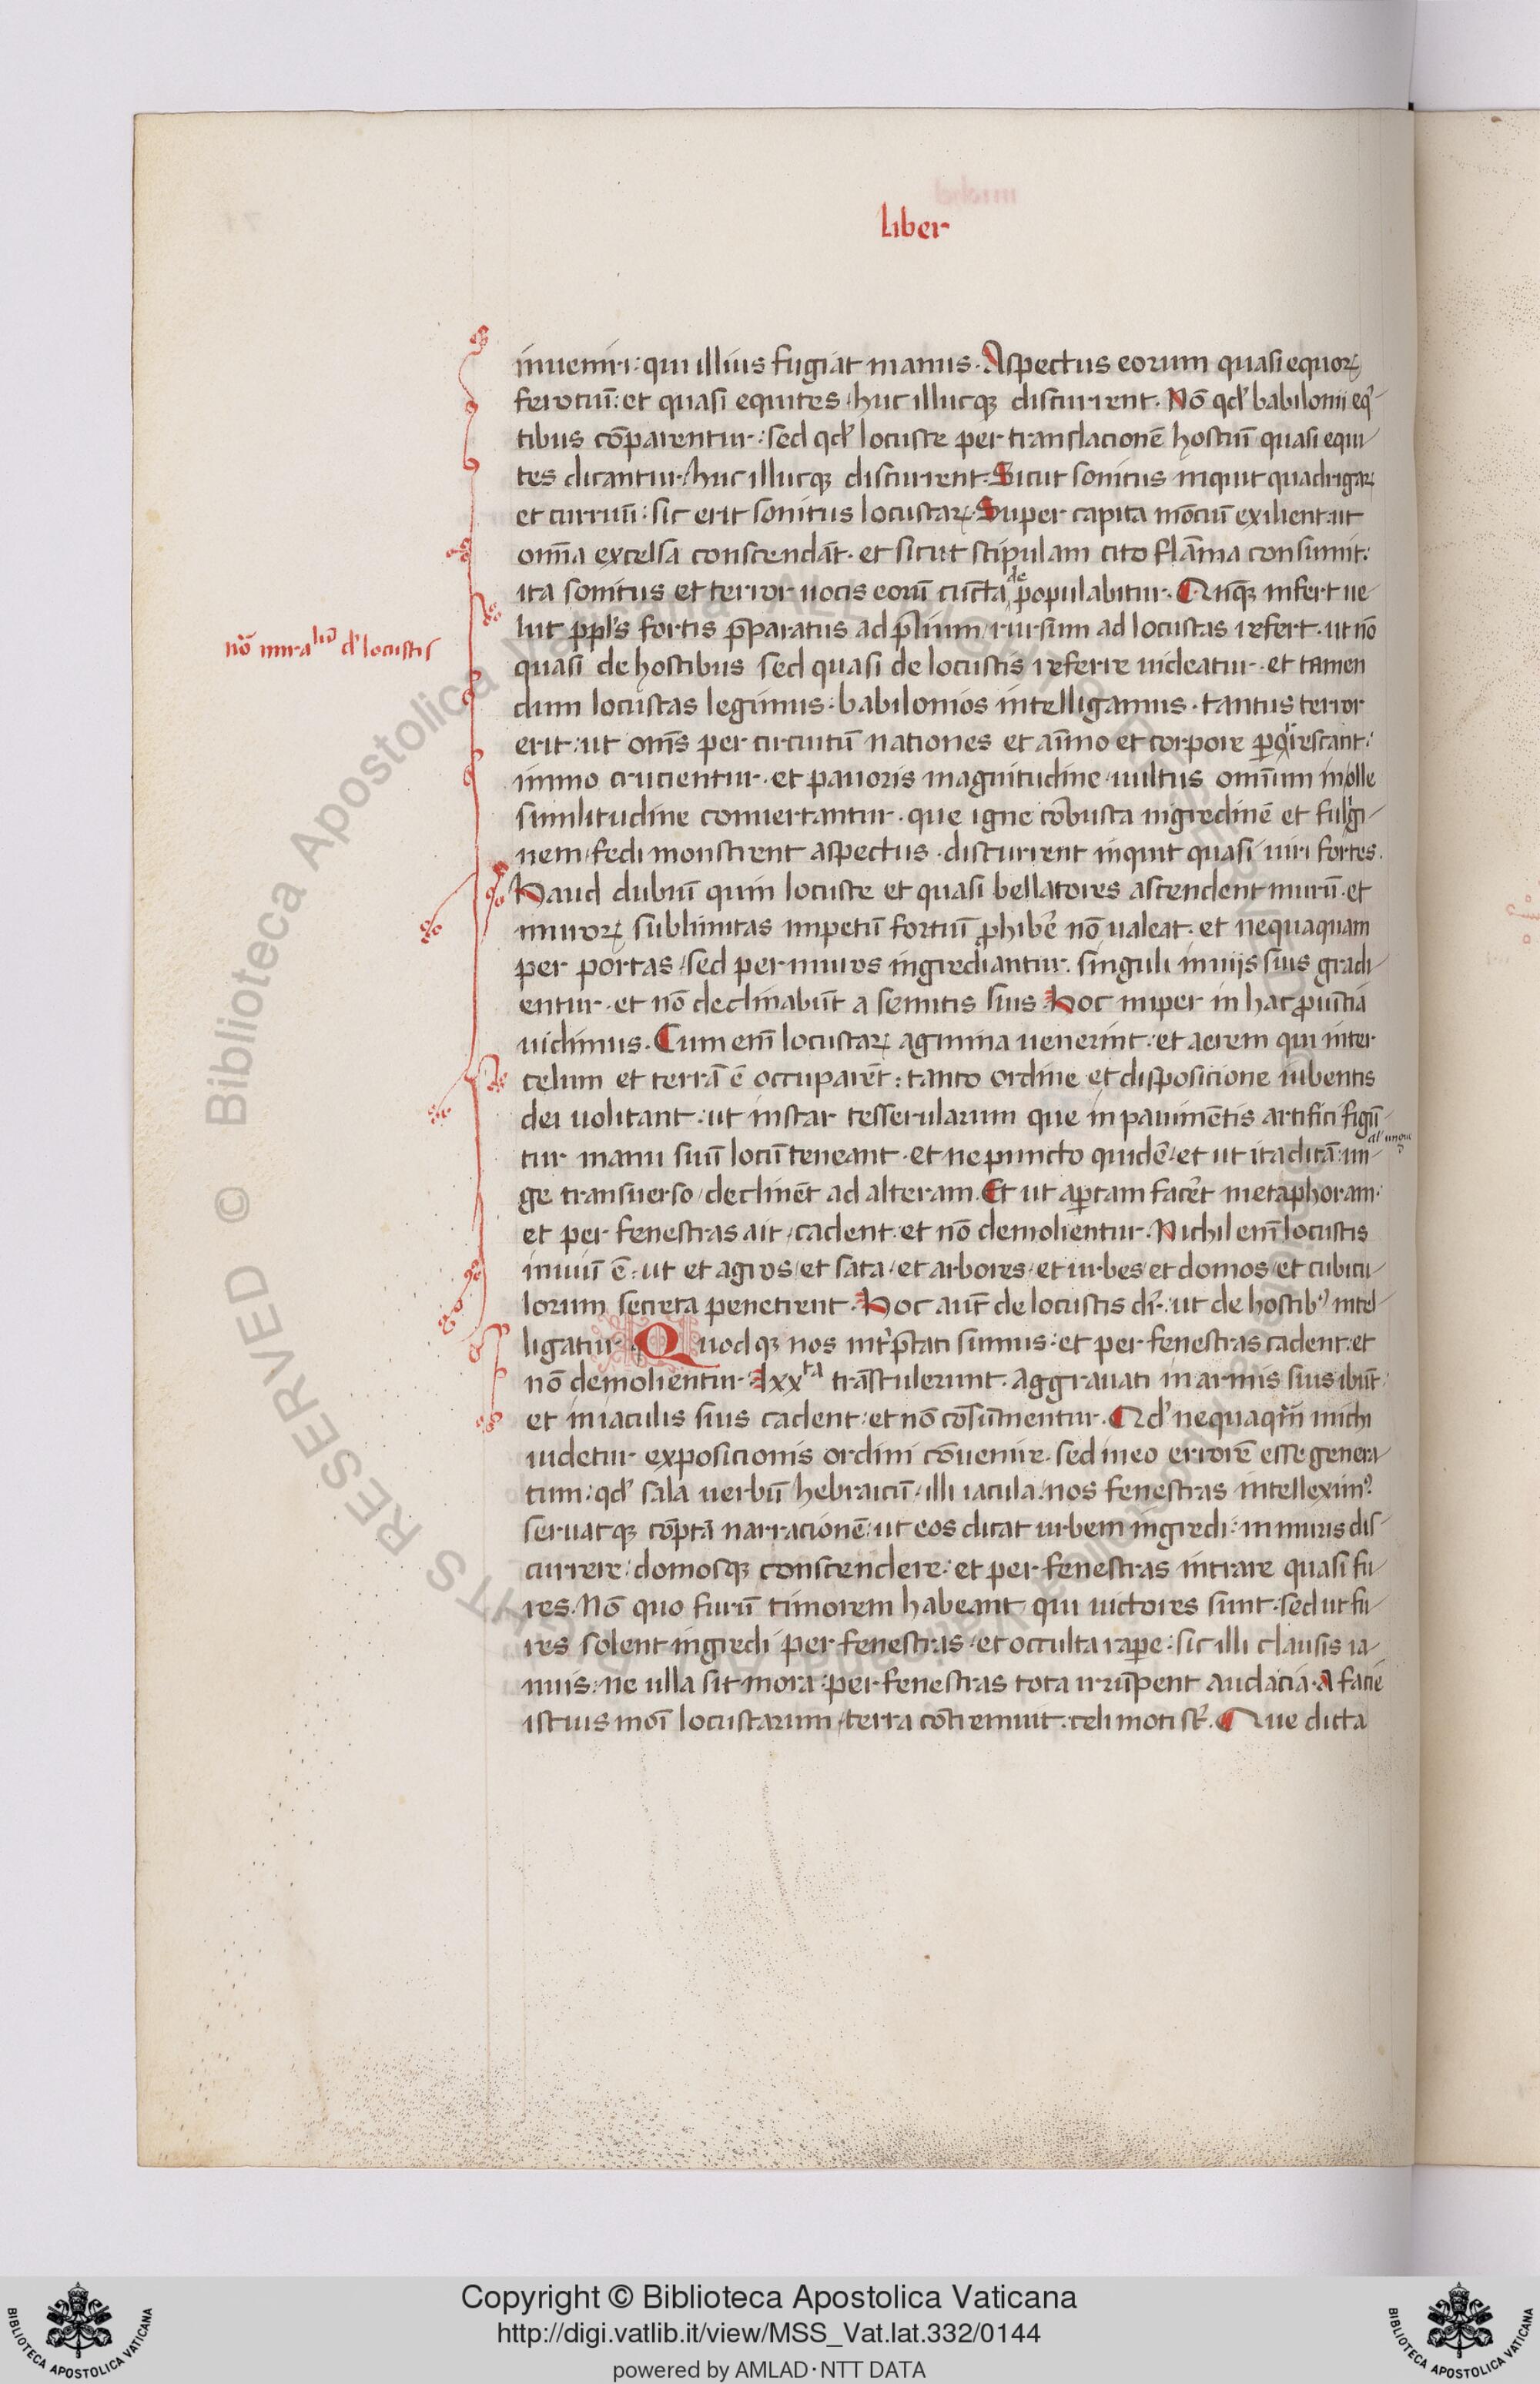 liber
inueniri: qui illius fugiat manus. Aspectus eorum quasi equoꝝ
ferociū: et quasi equites huc illucqꝫ discurrent. Nō qd' babilonii eq̓
tibus cōparentur: sed qd' locuste per translacionē hostiū quasi equi
tes dicantur huc illucqꝫ discurrent. Sicut sonitus inquit quadrigaꝝ
et curruū: sic erit sonitus locustaꝝ. Super capita mōciū exilient: ut
om̄a excelsa conscendāt. et sicut stipulam cito flāma consumit:
ita sonitus et terror uocis eorū cuncta de ꝑopulabitur. Qusqꝫ infert ue
lut ppl's fortis p̄paratus ad p̄lium / rursum ad locustas refert. ut nō
nō mira liū d' locustis
quasi de hostibus sed quasi de locustis referre uideatur. et tamen
dum locustas legimus: babilonios intelligamus. tantus terror
erit: ut om̄s per circuitū nationes et aīmo et corpore ꝑq̇iescant:
immo crucientur. et pauoris magnitudine uultus omīum in olle
similitudine conuertantur. que igne cōbusta nigredinē et fuligi
nem / fedi monstrent aspectus. discurrent inquit quasi uiri fortes.
Haud dubiū quin locuste et quasi bellatores ascendent murū. et
muroꝝ sublimitas impetū fortiū ꝓhibe̅ nō ualeat. et nequaquam
per portas / sed per muros ingrediantur. singuli in uijs suis gradi
entur. et nō declinabūt a semitis suis. Hoc nuper in hac ꝓuītia
uidimus. Cum enī locustaꝝ agmina uenerint: et aerem qui inter
celum et terrā ē occuparēt: tanto ordine et disposicione iubentis
dei uolitant: ut instar tesserularum que in pauimētis artifici figū
tur manu suū locū teneant. et ne puncto quidē / et ut ita dicā: un
al' ungue
ge transuerso / declinēt ad alteram. Et ut aꝑtam face̅t metaphoram:
et per fenestras ait / cadent. et nō demolientur. Nichil enī locustis
inuiū ē: ut et agros / et sata / et arbores / et urbes / et domos / et cubicu
lorum secreta penetrent. Hoc aut̄ de locustis dr̄: ut de hostibꝰ intel
ligatur. Quodqꝫ nos int̓p̄tati sumus: et per fenestras cadent: et
nō demolientur. lxxᵗᵃ trāstulerunt. Aggrauati in armis suis ibūt:
et in iaculis suis cadent: et nō cōsūmentur. Qd' nequaq̄m michi
uidetur exposicionis ordini cōuenire. sed in eo errorē esse genera
tum: qd' sala uerbū hebraicū / illi iacula: nos fenestras intelleximꝰ
seruatqꝫ cōptā narracionē: ut eos dicat urbem ingredi: in muris dis
currere: domosqꝫ conscendere: et per fenestras intrare quasi fu
res. Nō quo furū timorem habeant qui uictores sunt. sed ut fu
res solent ingredi per fenestras / et occulta raꝑe: sic illi clausis ia
nuis: ne ulla sit mora: per fenestras tota irrūpent audacia. A facie
istius mōi locustarum / terra cōtremuit. celi moti st̄. Que dicta
Copyright © Biblioteca Apostolica Vaticana
http://digi.vatlib.it/view/MSS_Vat.lat.332/0144
powered by AMLAD·NTT DATA